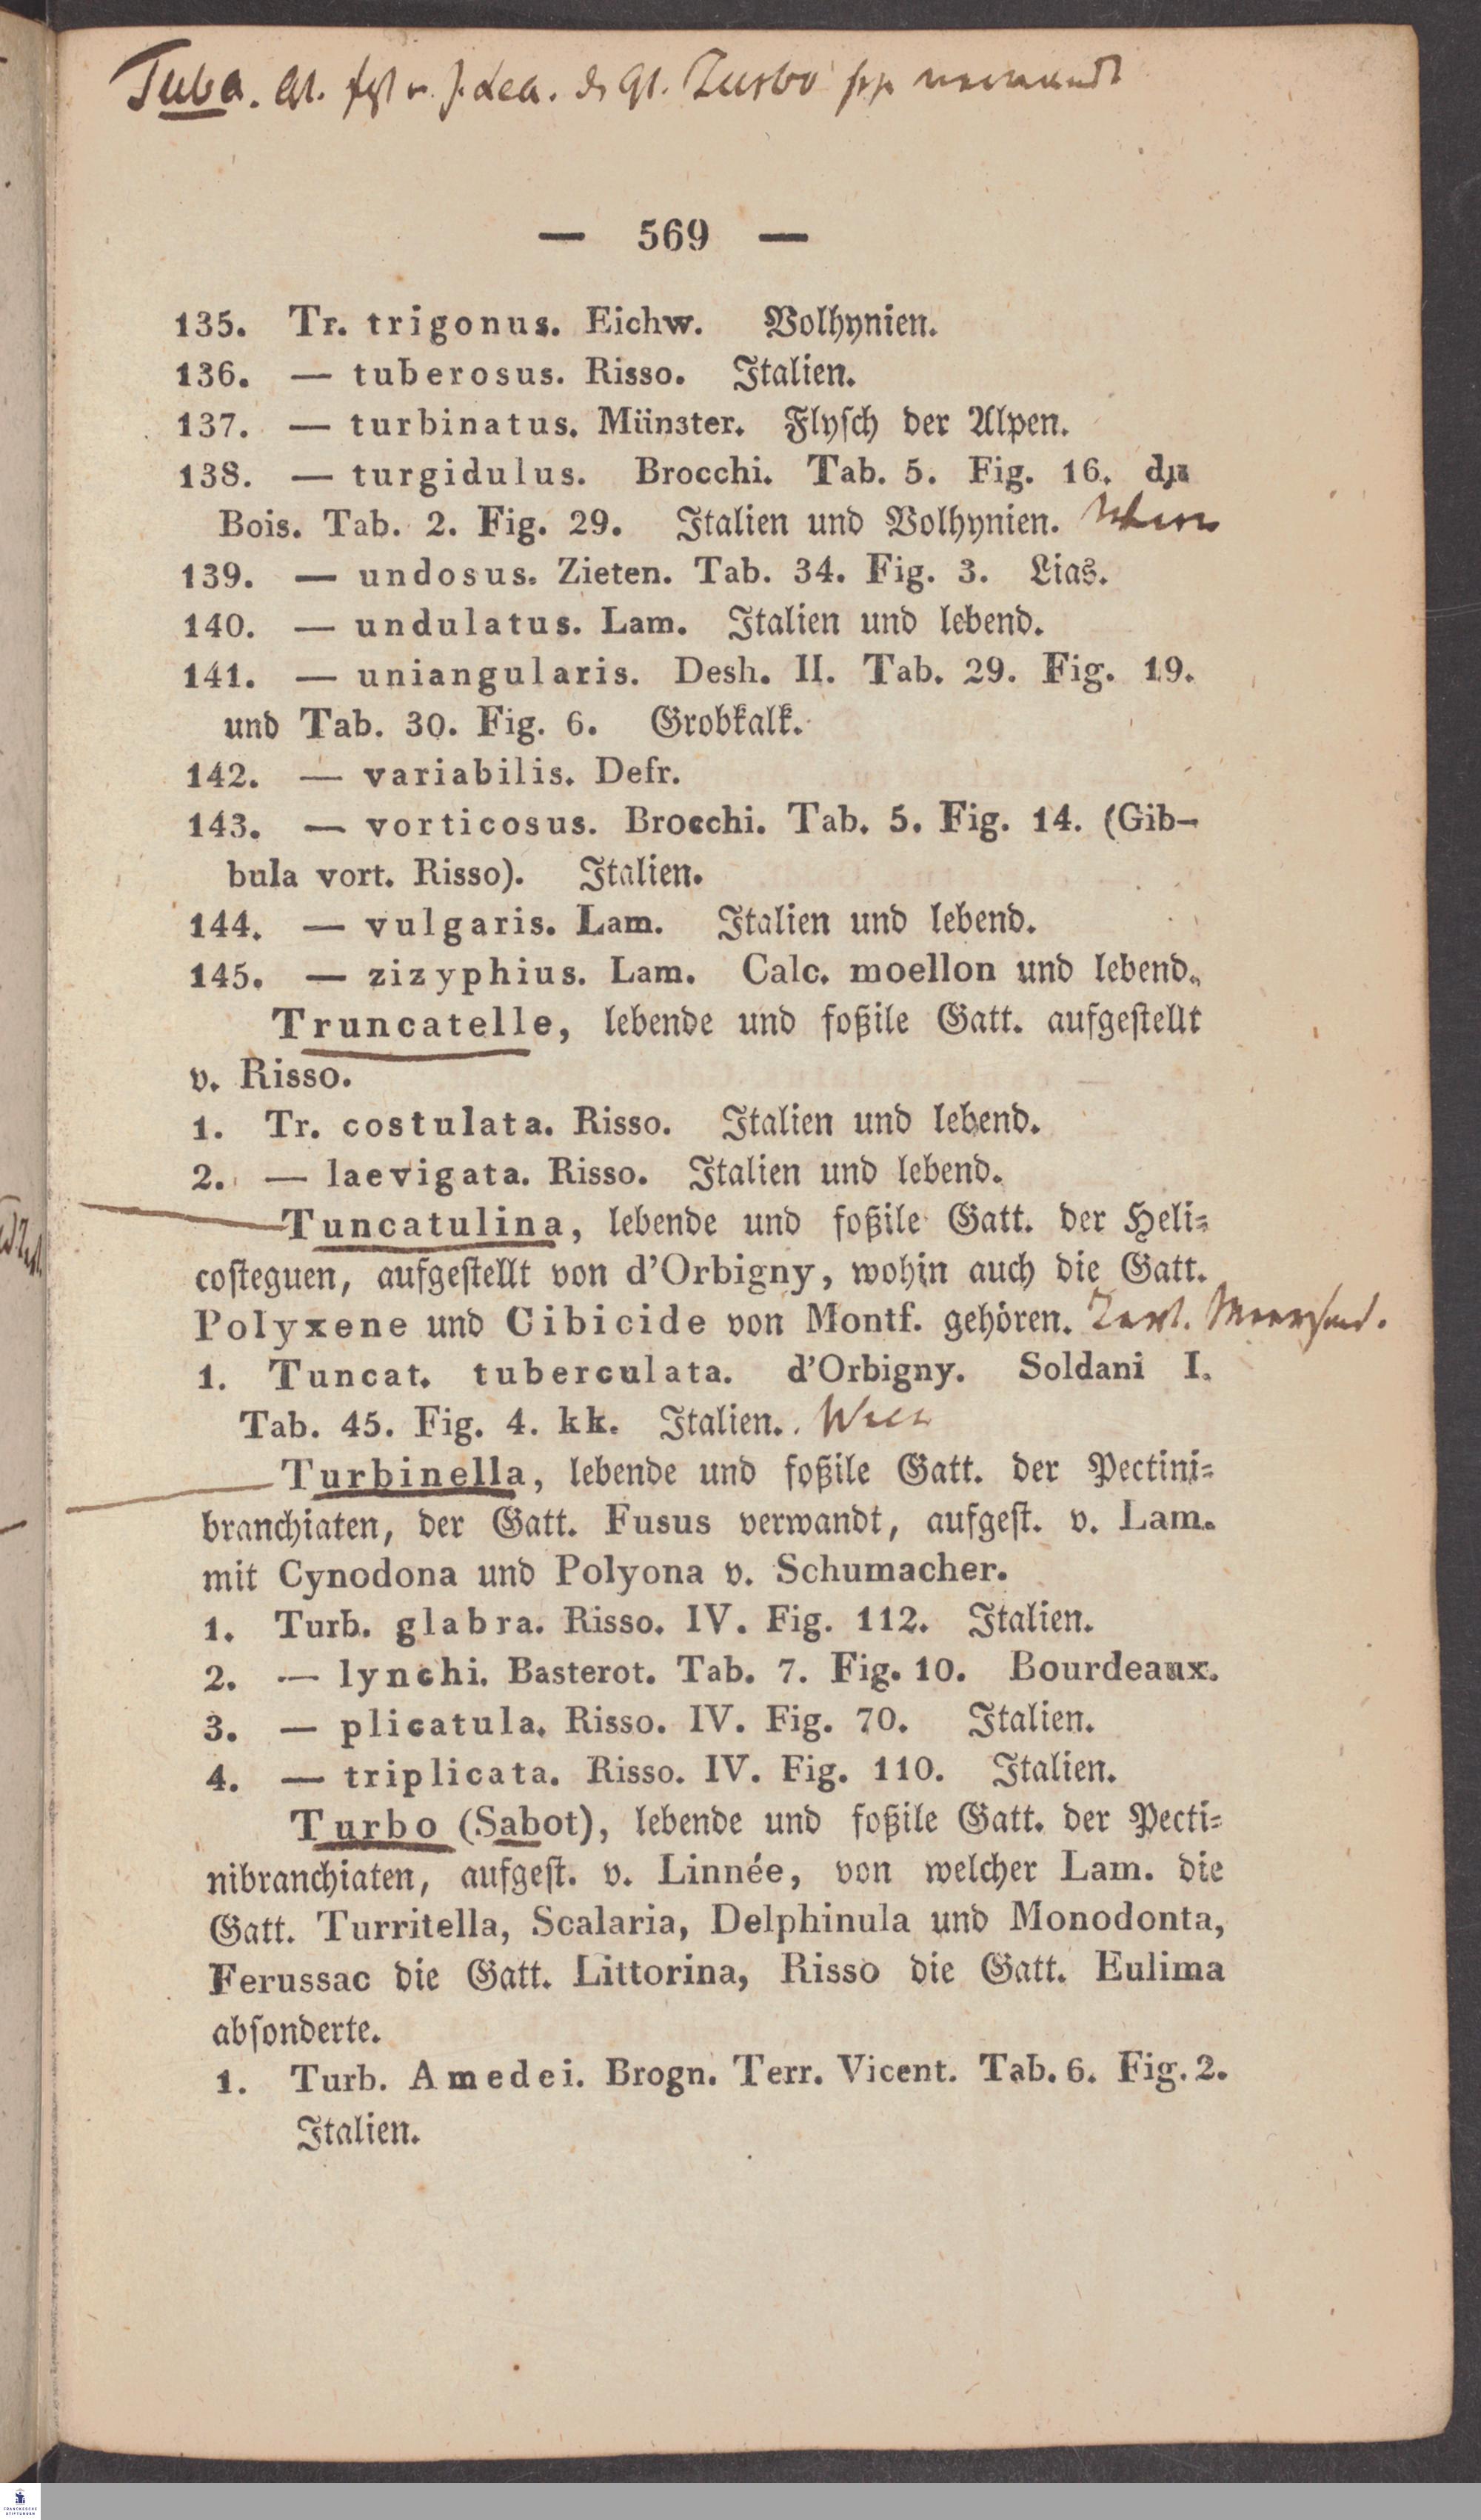 Tuba. Gt. v. Lea. d. Gt. Turbo verwandt
— 569 —
135. Tr. trigonus. Eichw. Volhynien.
136. — tuberosus. Risso. Italien.
137. — turbinatus. Münster. Flysch der Alpen.
138. — turgidulus. Brocchi. Tab. 5. Fig. 16. du
Bois. Tab. 2. Fig. 29. Italien und Volhynien.
139. — undosus. Zieten. Tab. 34. Fig. 3. Lias.
140. — undulatus. Lam. Italien und lebend.
141. — uniangularis. Desh. II. Tab. 29. Fig. 19.
und Tab. 30. Fig. 6. Grobkalk.
142. — variabilis. Defr.
143. — vorticosus. Brocchi. Tab. 5. Fig. 14. (Gib-
bula vort. Risso). Italien.
144. — vulgaris. Lam. Italien und lebend.
145. — zizyphius. Lam. Calc. moellon und lebend.
Truncatelle, lebende und foßile Gatt. aufgestellt
v. Risso.
1. Tr. costulata. Risso. Italien und lebend.
2. — laevigata. Risso. Italien und lebend.
Tuncatulina, lebende und foßile Gatt. der Heli-
costeguen, aufgestellt von d'Orbigny, wohin auch die Gatt.
Polyxene und Cibicide von Montf. gehören. Tert. Meersand.
1. Tuncat. tuberculata. d'Orbigny. Soldani I.
Tab. 45. Fig. 4. kk. Italien.
Turbinella, lebende und foßile Gatt. der Pectini-
branchiaten, der Gatt. Fusus verwandt, aufgest. v. Lam.
mit Cynodona und Polyona v. Schumacher.
1. Turb. glabra. Risso. IV. Fig. 112. Italien.
2. — lynchi. Basterot. Tab. 7. Fig. 10. Bourdeaux.
3. — plicatula. Risso. IV. Fig. 70. Italien.
4. — triplicata. Risso. IV. Fig. 110. Italien.
Turbo (Sabot), lebende und foßile Gatt. der Pecti-
nibranchiaten, aufgest. v. Linnée, von welcher Lam. die
Gatt. Turritella, Scalaria, Delphinula und Monodonta,
Ferussac die Gatt. Littorina, Risso die Gatt. Eulima
absonderte.
1. Turb. Amedei. Brogn. Terr. Vicent. Tab. 6. Fig. 2.
Italien.
FRANCKESCHE
STIFTUNGEN